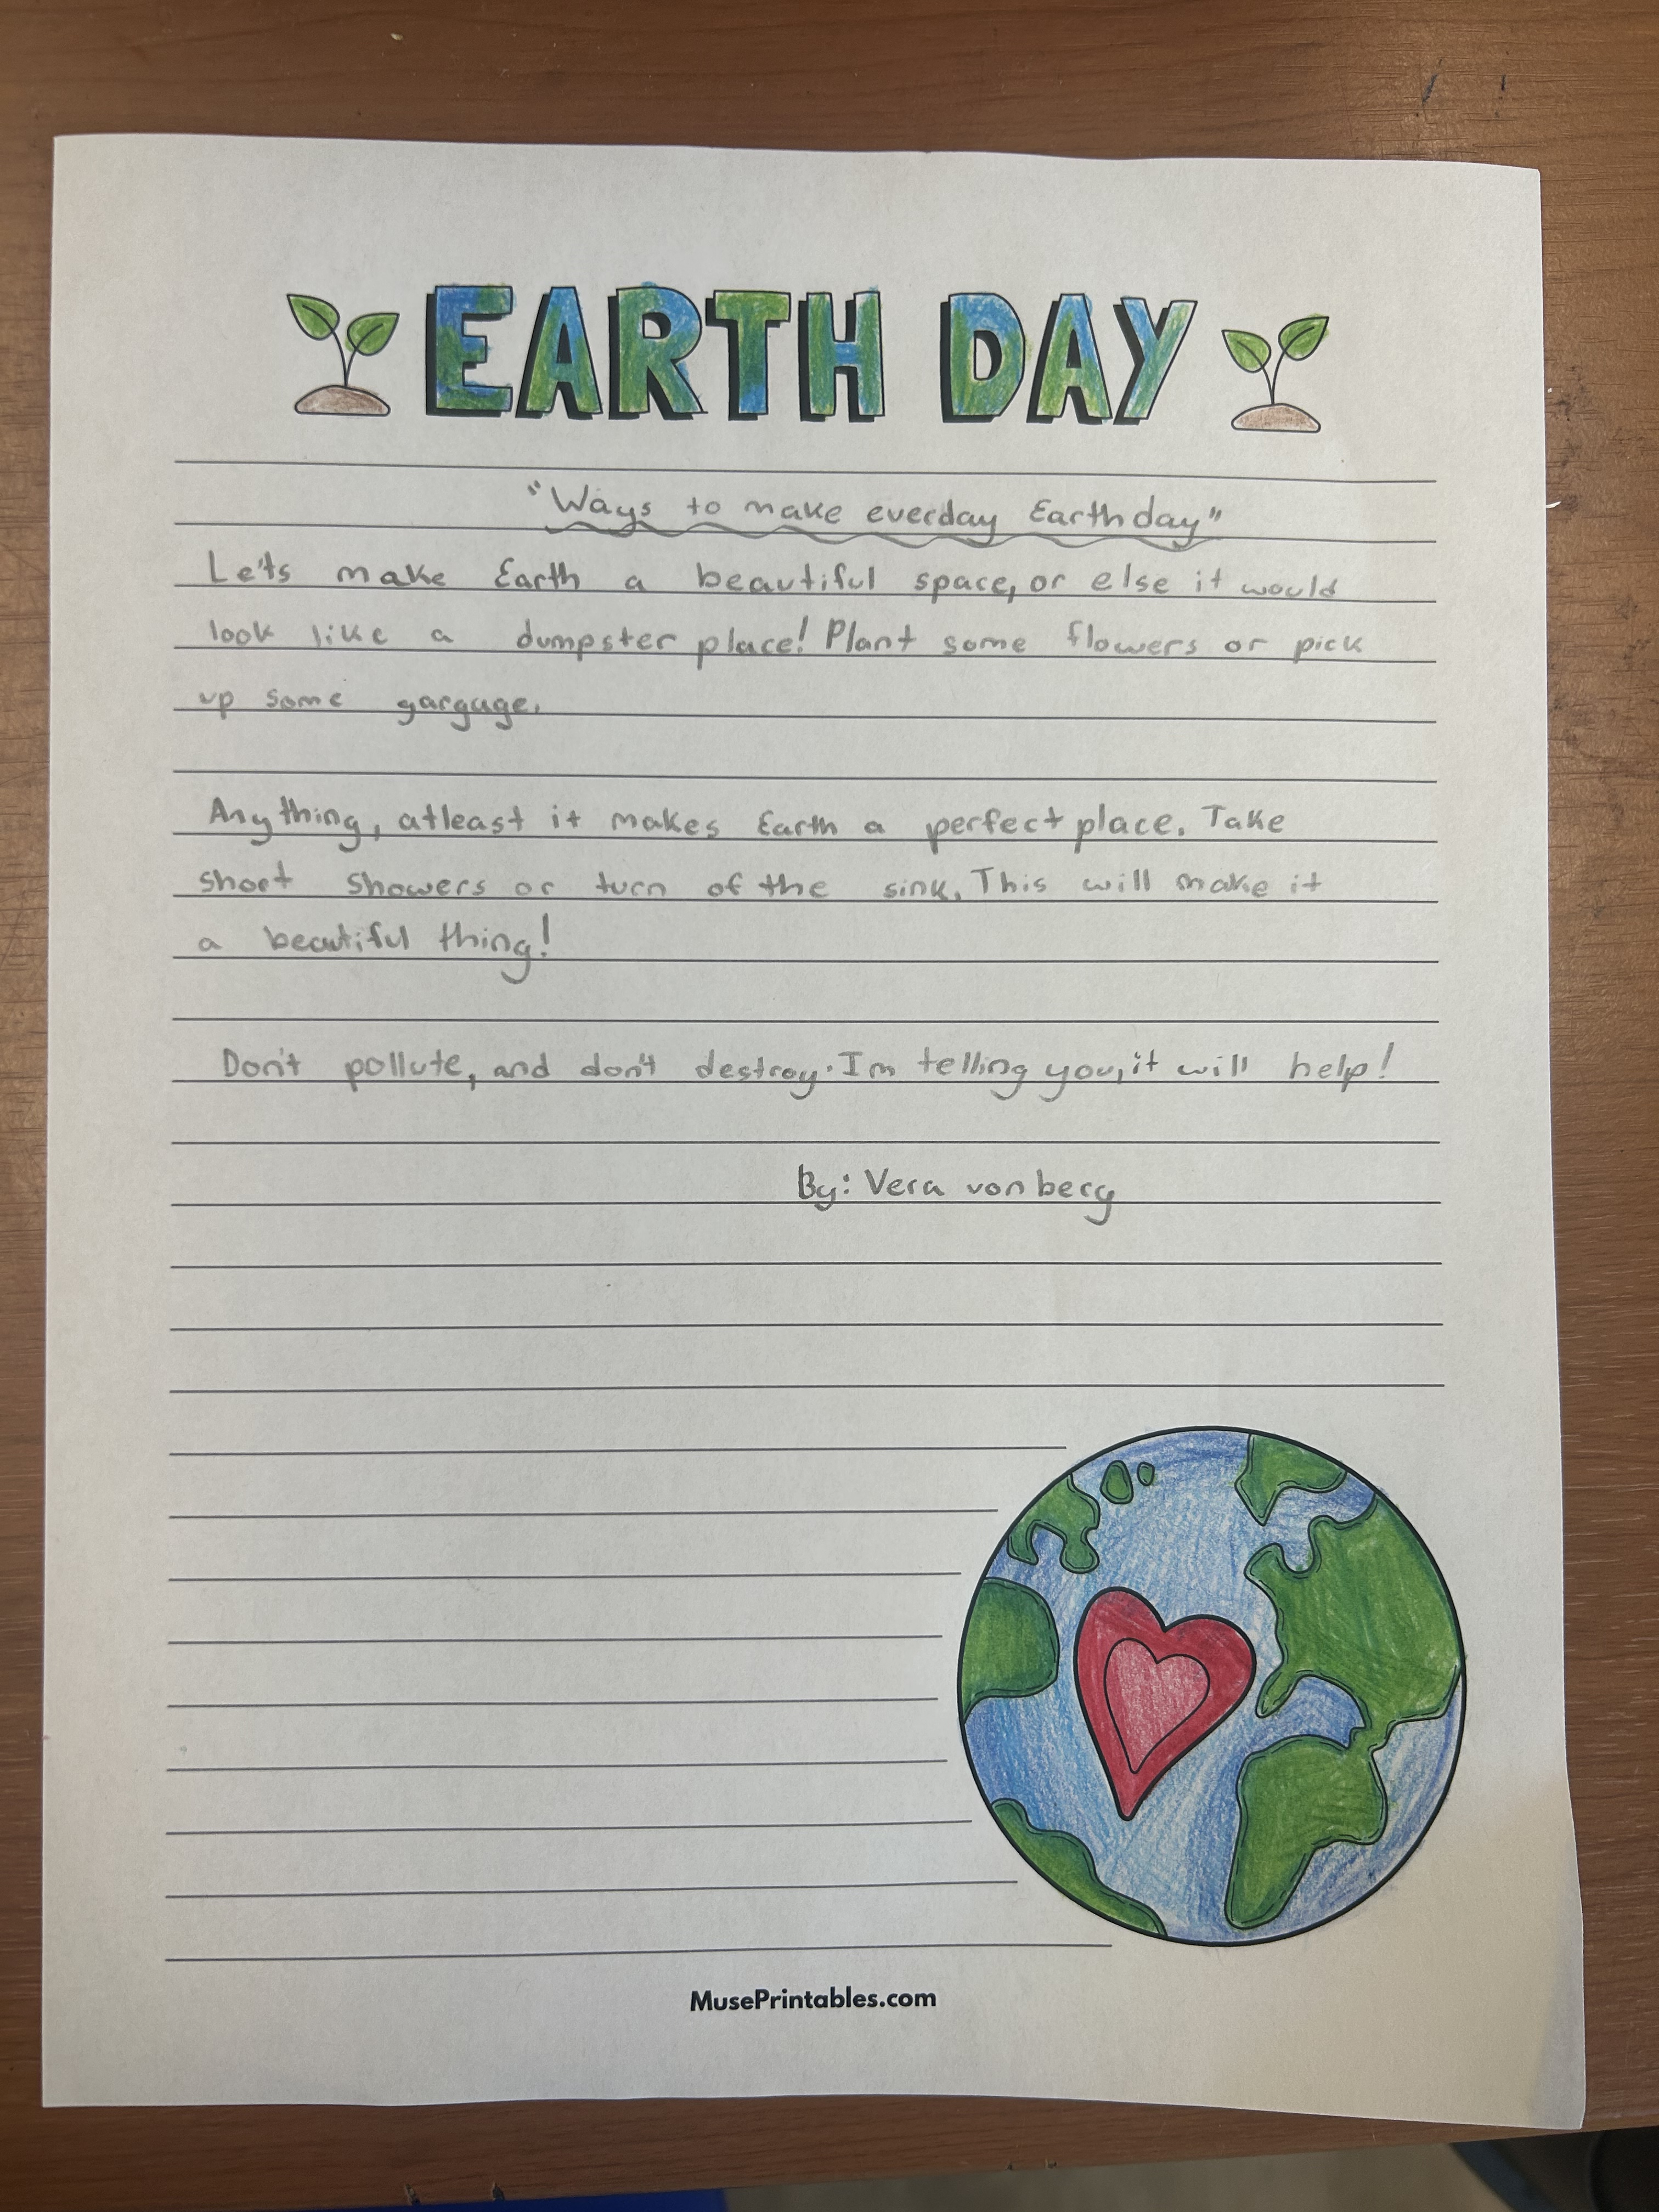 EARTH DAY
"Ways to make everday Earth day"
Let's make Earth a beautiful space, or else it would
look like a dumpster place! Plant some flowers or pick
up some garguge.
Anything, atleast it makes Earth a perfect place. Take
short showers or turn of the sink. This will make it
a beautiful thing!
Don't pollute, and don't destroy. I'm telling you, it will help!
By: Vera von berg
MusePrintables.com